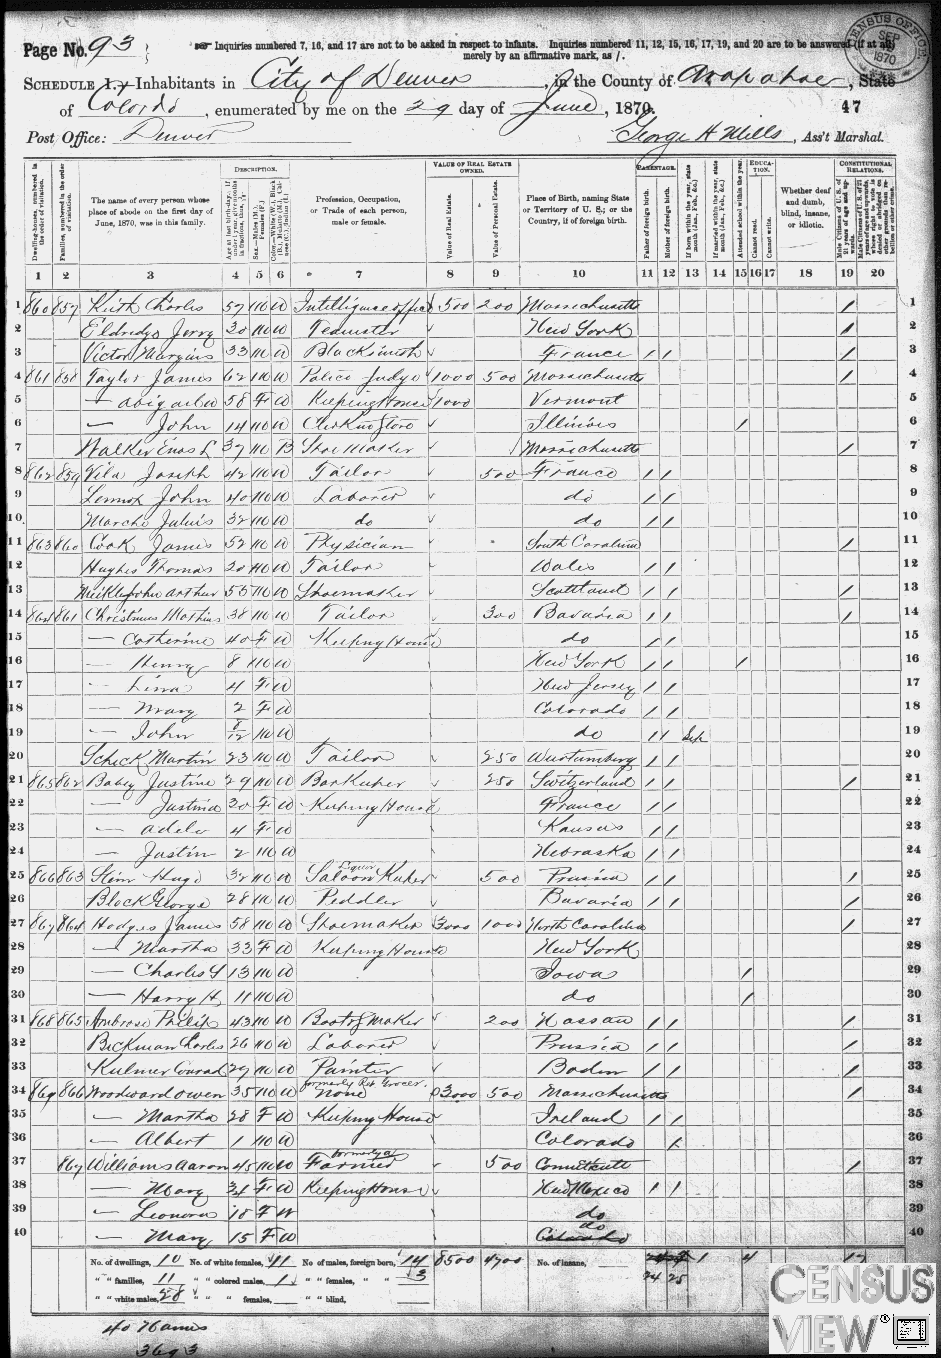 Page No. 93
Inquiries numbered 7, 16, and 17 are not to be asked in respect to infants. Inquiries numbered 11, 12, 15, 16, 17, 19, and 20 are to be answered (if at all)
merely by an affirmative mark, as /.
SCHEDULE 1.—Inhabitants in City of Denver, in the County of Arapahoe, State
of Colordo, enumerated by me on the 29 day of June, 1870. 47
Post Office: Denver George H Mills, Ass't Marshal.
DESCRIPTION. VALUE OF REAL ESTATE OWNED. PARENTAGE. EDUCATION. CONSTITUTIONAL RELATIONS.
Dwelling-houses, numbered in the order of visitation.
Families, numbered in the order of visitation.
The name of every person whose place of abode on the first day of June, 1870, was in this family.
Profession, Occupation, or Trade of each person, male or female.
Value of Real Estate.
Value of Personal Estate.
Place of Birth, naming State or Territory of U. S.; or the Country, if of foreign birth.
Father of foreign birth.
Mother of foreign birth.
Attended school within the year.
Cannot read.
Cannot write.
Whether deaf and dumb, blind, insane, or idiotic.
1 2 3 4 5 6 7 8 9 10 11 12 13 14 15 16 17 18 19 20
1 860 857 Keith Charles 57 M W Intelligence office 500 200 Massachusetts / 1
2 Eldredge Jerry 30 M W Teamster New York / 2
3 Victor 33 M W Blacksmith France / / / 3
4 861 858 Taylor James 62 M W Police Judge 1000 500 Massachusetts / 4
5 — 58 F W Keeping House 1000 Vermont 5
6 — John 14 M W Clerk in Store Illinois / 6
7 Walker Enos L 37 M B Shoe Maker Massachusetts / 7
8 862 859 Vila Joseph 42 M W Tailor 500 France / / 8
9 Lennox John 40 M W Laborer do / / 9
10 Marche Julius 32 M W do do / / 10
11 863 860 Cook James 52 M W Physician South Carolina / 11
12 Hughes Thomas 20 M W Tailor Wales / / 12
13 Meiklejohn Arthur 55 M W Shoemaker Scottland / / / 13
14 864 861 Christinus Mathias 38 M W Tailor 300 Bavaria / / / 14
15 — Catherine 40 F W Keeping House do / / 15
16 — Henry 8 M W New York / / / 16
17 — Lina 4 F W New Jersey / / 17
18 — Mary 2 F W Colorado / / 18
19 — John 8/12 M W do / / Sep 19
20 Schick Martin 23 M W Tailor 250 Wurtemburg / / 20
21 865 862 Baby Justine 29 M W Bar Keeper 250 Switzerland / / / 21
22 — Justina 30 F W Keeping House France / / 22
23 — Adele 4 F W Kansas / / 23
24 — Justin 2 M W Nebraska / / 24
25 866 863 Stein Hugo 32 M W Liquor Saloon Keeper 500 Prussia / / / 25
26 Block George 28 M W Peddler Bavaria / / / 26
27 867 864 Hodges James 58 M W Shoemaker 3000 1000 North Carolina / 27
28 — Martha 33 F W Keeping House New York 28
29 — Charles 13 M W Iowa / 29
30 — Harry H. 11 M W do / 30
31 868 865 Ambrose Philip 43 M W Boot & Maker 200 Nassau / / / 31
32 Beckman Charles 26 M W Laborer Prussia / / / 32
33 Kulmer Conrad 29 M W Painter Baden / / / 33
34 869 866 Woodward Owen 35 M W formerly Ret. Grocer. None 3000 500 Massachusetts / 34
35 — Martha 28 F W Keeping House Ireland / / 35
36 — Albert 1 M W Colorado / 36
37 867 Williams Aaron 45 M W formerly a Farmer 500 Connecticutt / 37
38 — Mary 34 F W Keeping House New Mexico / / 38
39 — Leonora 18 F W do 39
40 — Mary 15 F W do Colorado 40
No. of dwellings, 10 No. of white females, 11 No. of males, foreign born, 14 8500 4700 No. of insane, 1 4 17
" " families, 11 " " colored males, 1 " " females, " " 3 24 25
" " white males, 28 " " females, " " blind,
40 Names
3693
CENSUS OFFICE SEP 1870
CENSUS
VIEW®